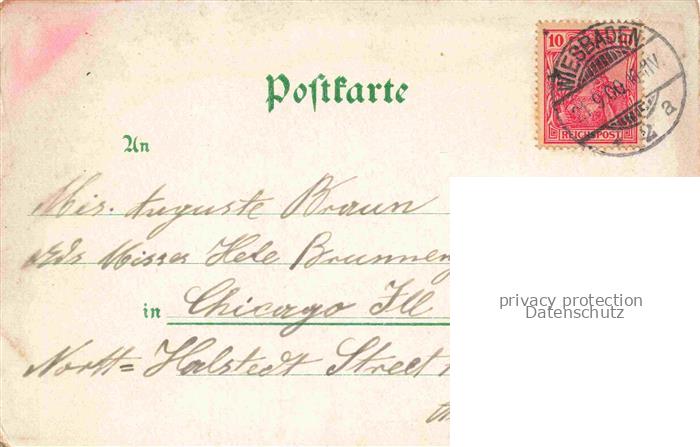 Postkarte
10
WIESBADEN
REICHSPOST
An
Mis. Auguste Braun
Misses Hele Brunneng
in Chicago Ill
North=Halstedt Street
privacy protection
Datenschutz